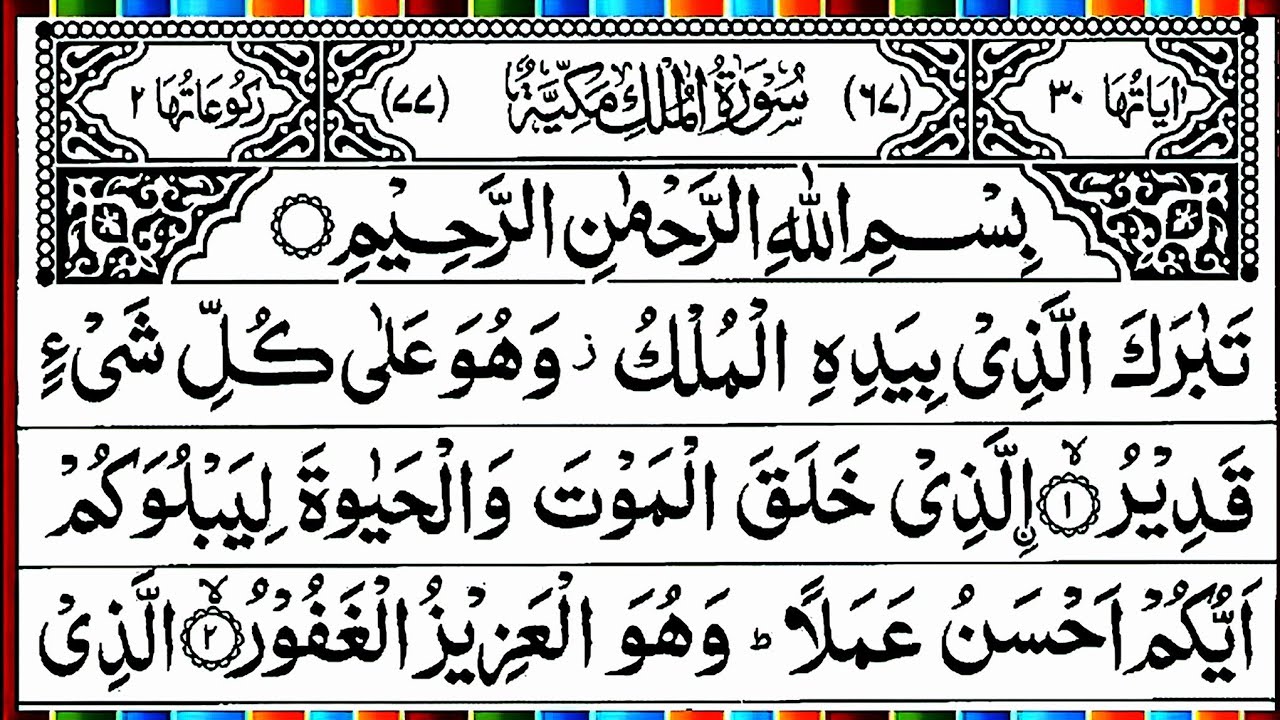 اٰیَاتُهَا ٣٠ (٦٧) سُوْرَةُ الْمُلْكِ مَكِّيَّةٌ (٧٧) رُكُوْعَاتُهَا ٢
بِسْمِ اللّٰهِ الرَّحْمٰنِ الرَّحِيْمِ
تَبٰرَكَ الَّذِیْ بِيَدِهِ الْمُلْكُ ز وَهُوَ عَلٰى كُلِّ شَیْءٍ
قَدِيْرُ ۙ﴿١﴾ اۨلَّذِیْ خَلَقَ الْمَوْتَ وَالْحَيٰوةَ لِيَبْلُوَكُمْ
اَيُّكُمْ اَحْسَنُ عَمَلًا ؕ وَهُوَ الْعَزِيْزُ الْغَفُوْرُ ۙ﴿٢﴾ الَّذِیْ